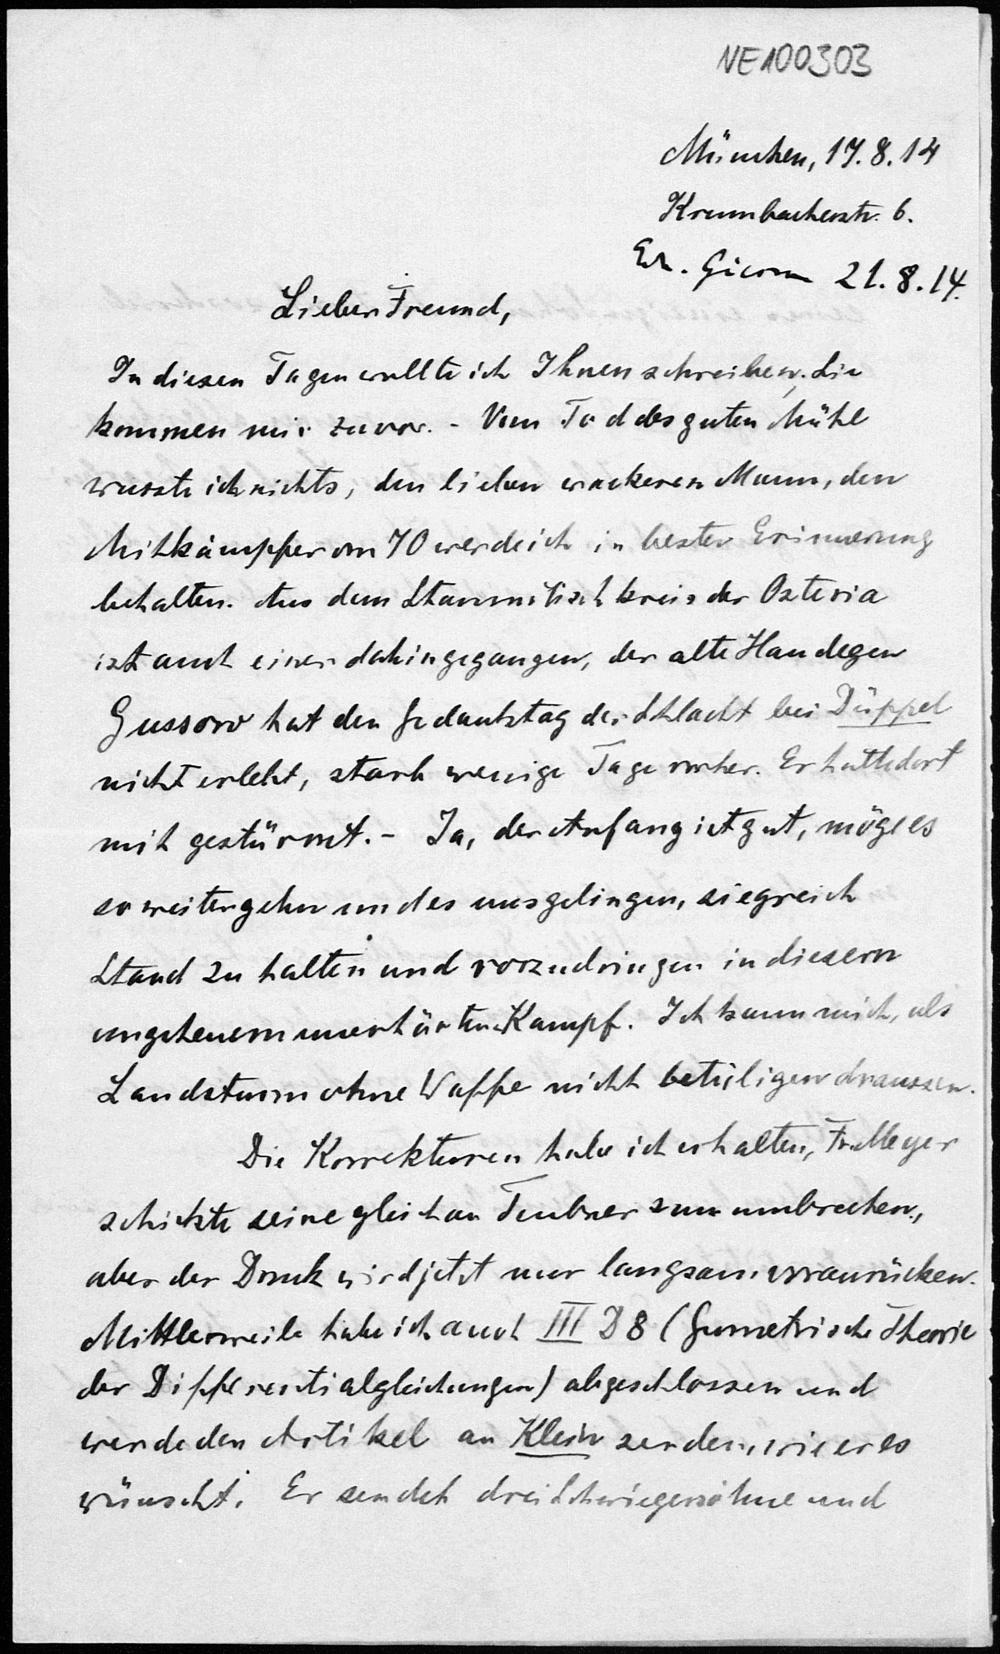 NE100303
München, 17.8.14
Krumbacherstr. 6.
21.8.14.
Lieber Freund,
In diesen Tagen wollte ich Ihnen schreiben, Sie
kommen mir zuvor. - Vom Tod des guten Mühl
wusste ich nichts, den lieben wackeren Mann, den
Mitkämpfer von 70 werde ich in bester Erinnerung
behalten. Aus dem Stammtischkreis der Osteria
ist auch einer dahingegangen, der alte Haudegen
Gussow hat den Gedenktag der Schlacht bei Düppel
nicht erlebt, starb wenige Tage vorher. Er hatte dort
mit gestürmt. - Ja, der Anfang ist gut, mög es
so weitergehn und es uns gelingen, siegreich
Stand zu halten und vorzudringen in diesem
ungeheuern unerhörten Kampf. Ich kann mich, als
Landsturm ohne Waffe nicht beteiligen draussen.
Die Korrekturen habe ich erhalten, Fr. Meyer
schickte seine gleich an Teubner zum umbrechen,
aber der Druck wird jetzt nur langsam voranrücken.
Mittlerweile habe ich auch III D 8 (Geometrische Theorie
der Differentialgleichungen) abgeschlossen und
werde den Artikel an Klein senden, wie er es
wünscht. Er sendet drei Schwiegersöhne und